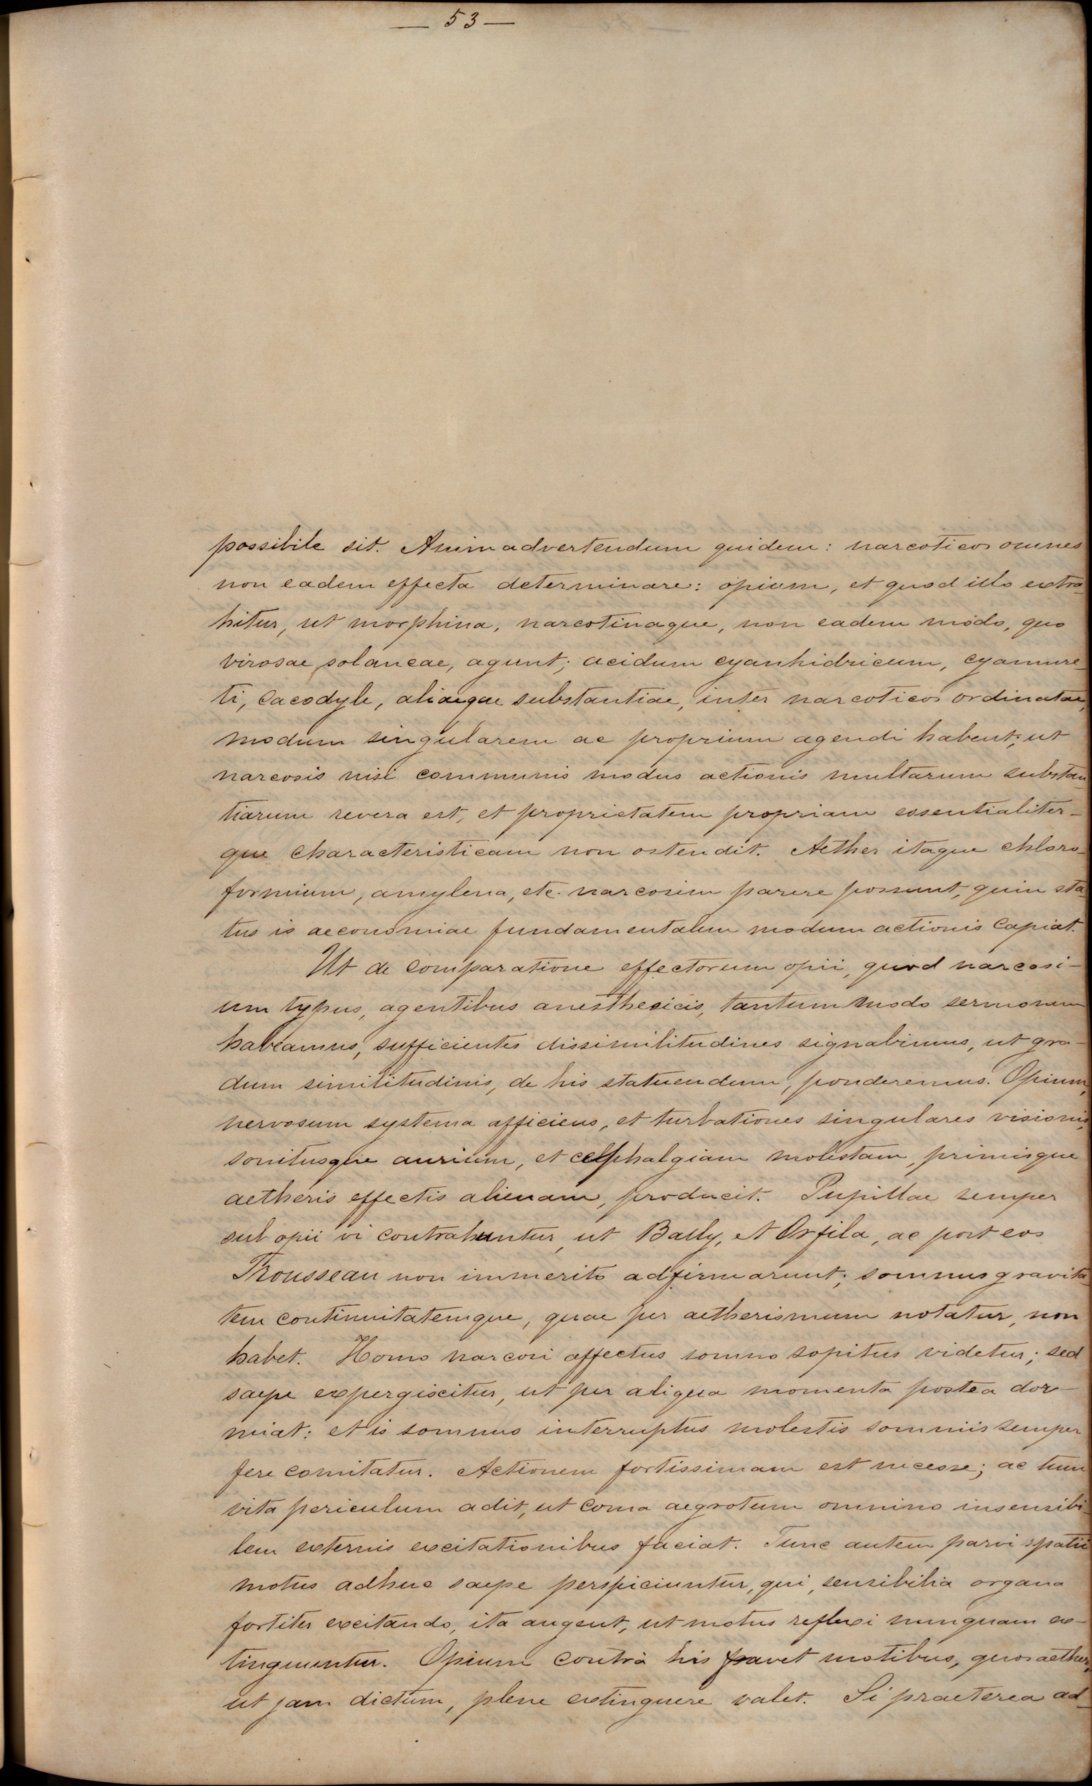 — 53 —
possibile sit. Animadvertendum quidem: narcoticos omnes
non eadem effecta determinare: opium, et quod illo extra-
hitur, ut morphina, narcotinaque, non eadem modo, quo
virosae solaneae, agunt; acidum cyanhidricum, cyanure-
ti, cacodyle, aliaeque substantiae, inter narcoticos ordinatae,
modum singularem ac proprium agendi habent; ut
narcosis nisi communis modus actionis multarum substan-
tiarum revera est, et proprietatem propriam essentialiter-
que characteristicam non ostendit. Aether itaque chloro-
formium, amylena, etc. narcosim parere possunt, quin sta-
tus is aeconomiae fundamentalem modum actionis capiat.
Ut de comparatione effectorum opii, quod narcosi-
um typus, agentibus anesthesicis, tantum modo sermonem
habeamus, sufficientes dissimilitudines signabimus, ut gra-
dum similitudinis, de his statuendum, ponderemus. Opium,
nervosum systema afficiens, et turbationes singulares visionis,
sonitusque aurium, et cephalgiam molestam, primisque
aetheris effectis alienam, producit. Pupillae semper
sub opii vi contrahuntur, ut Bally, et Orfila, ac post eos
Trousseau non immerito adfirmarunt; somnus gravita-
tem continuitatemque, quae per aetherismum notatur, non
habet. Homo narcosi affectus somno sopitus videtur; sed
saepe expergiscitur, ut per aliqua momenta postea dor-
miat: et is somnus interruptus molestis somniis semper
fere comitatur. Actionem fortissimam est necesse; ac tum
vita periculum adit, ut coma aegrotum omnino insensibi-
lem externis excitationibus faciat. Tunc autem parvi spatii
motus adhuc saepe perspiciuntur, qui, sensibilia organa
fortiter excitando, ita augent, ut motus reflexi nunquam ex-
tinguuntur. Opium contra his favet motibus, quos aether,
ut jam dictum, plene extinguere valet. Si praeterea ad-